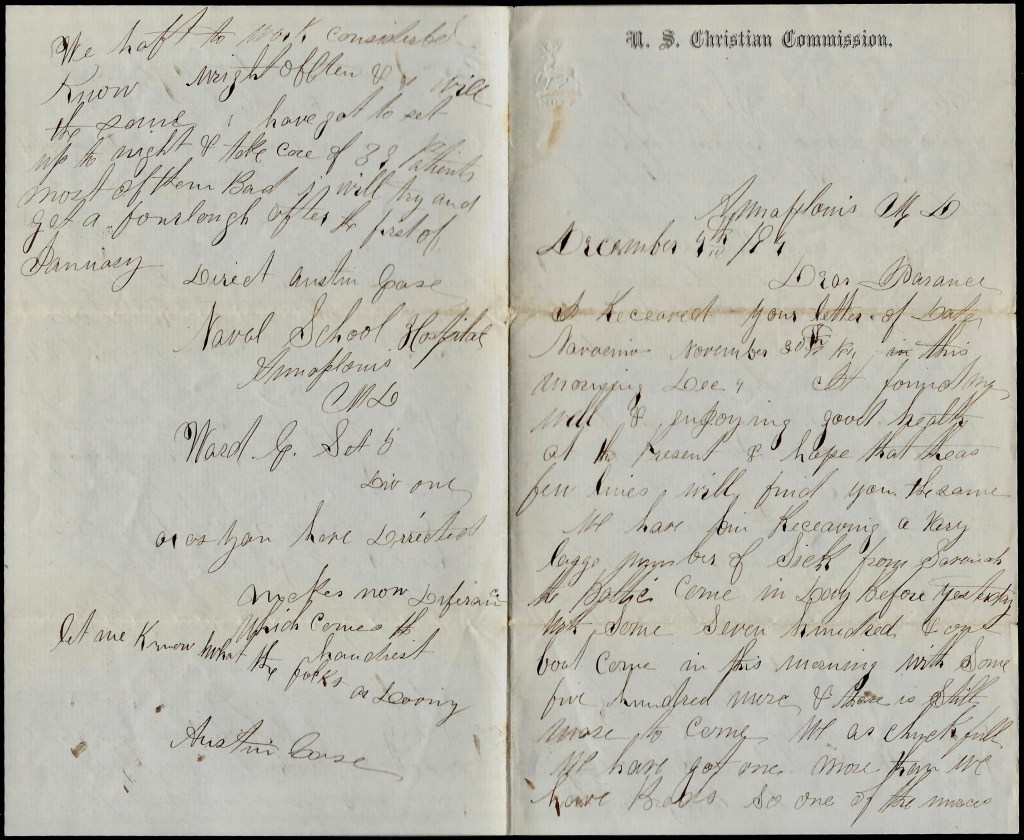 U. S. Christian Commission.
Annaplouis M D
December 4th /64
Dear Parance
I Receaved your letter of Date
November 30th in this
morning Dec 4 It found me
well & enjoying good health
at the Present & hope that theas
few lines will find you the same
We have bin Receaving a Very
large number of Sick from Savanah
the Baltic Come in Day before yesterday
with Some Seven hundred & one
boat Come in this morning with Some
five hundred more & there is Still
more to Come We as chuck full
We have got one more than we
have Beads So one of the
We haft to work considerbel
Know & I will
the same i have got to set
up to night & take care of 33 Patients
most of them Bad i will try and
get a fourlough after the first of
January
Direct Austin Case
Naval School Hospital
Annaplouis
M D
Ward G. Sect 5
Div one
or as you have Dirrected
makes now Diferanc
which comes the
handiest
let me Know what the folks as Dooing
Austin Case